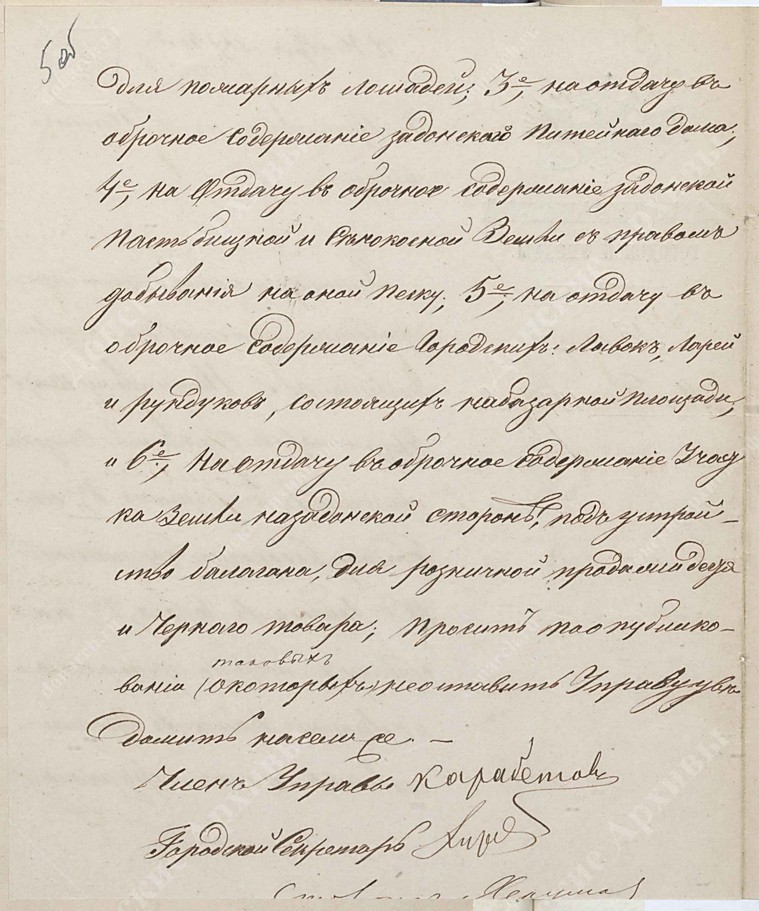 5 об
для пожарныхъ лошадей; 3е, на отдачу въ
оброчное содержаніе задонскаго Питейнаго дома;
4е, на Отдачу въ оброчное содержаніе задонской
Пастбищной и Сѣнокосной Земли съ правомъ
добыванія на оной Песку; 5е, на отдачу въ
оброчное содержаніе Городскихъ: Лавокъ, Ларей
и рундуковъ, состоящихъ на базарной площади,
и 6е, На отдачу въ оброчное содержаніе Участ
ка Земли на задонской сторонѣ, подъ устрой–
ство балагана, для розничной продажи дегтя
и Чернаго товара; просить по опублико–
ваніи (о которыхъ) таковыхъ не оставить Управу уве
домить на семъ же. –
Членъ Управы Карабетовъ
Городской Секретарь